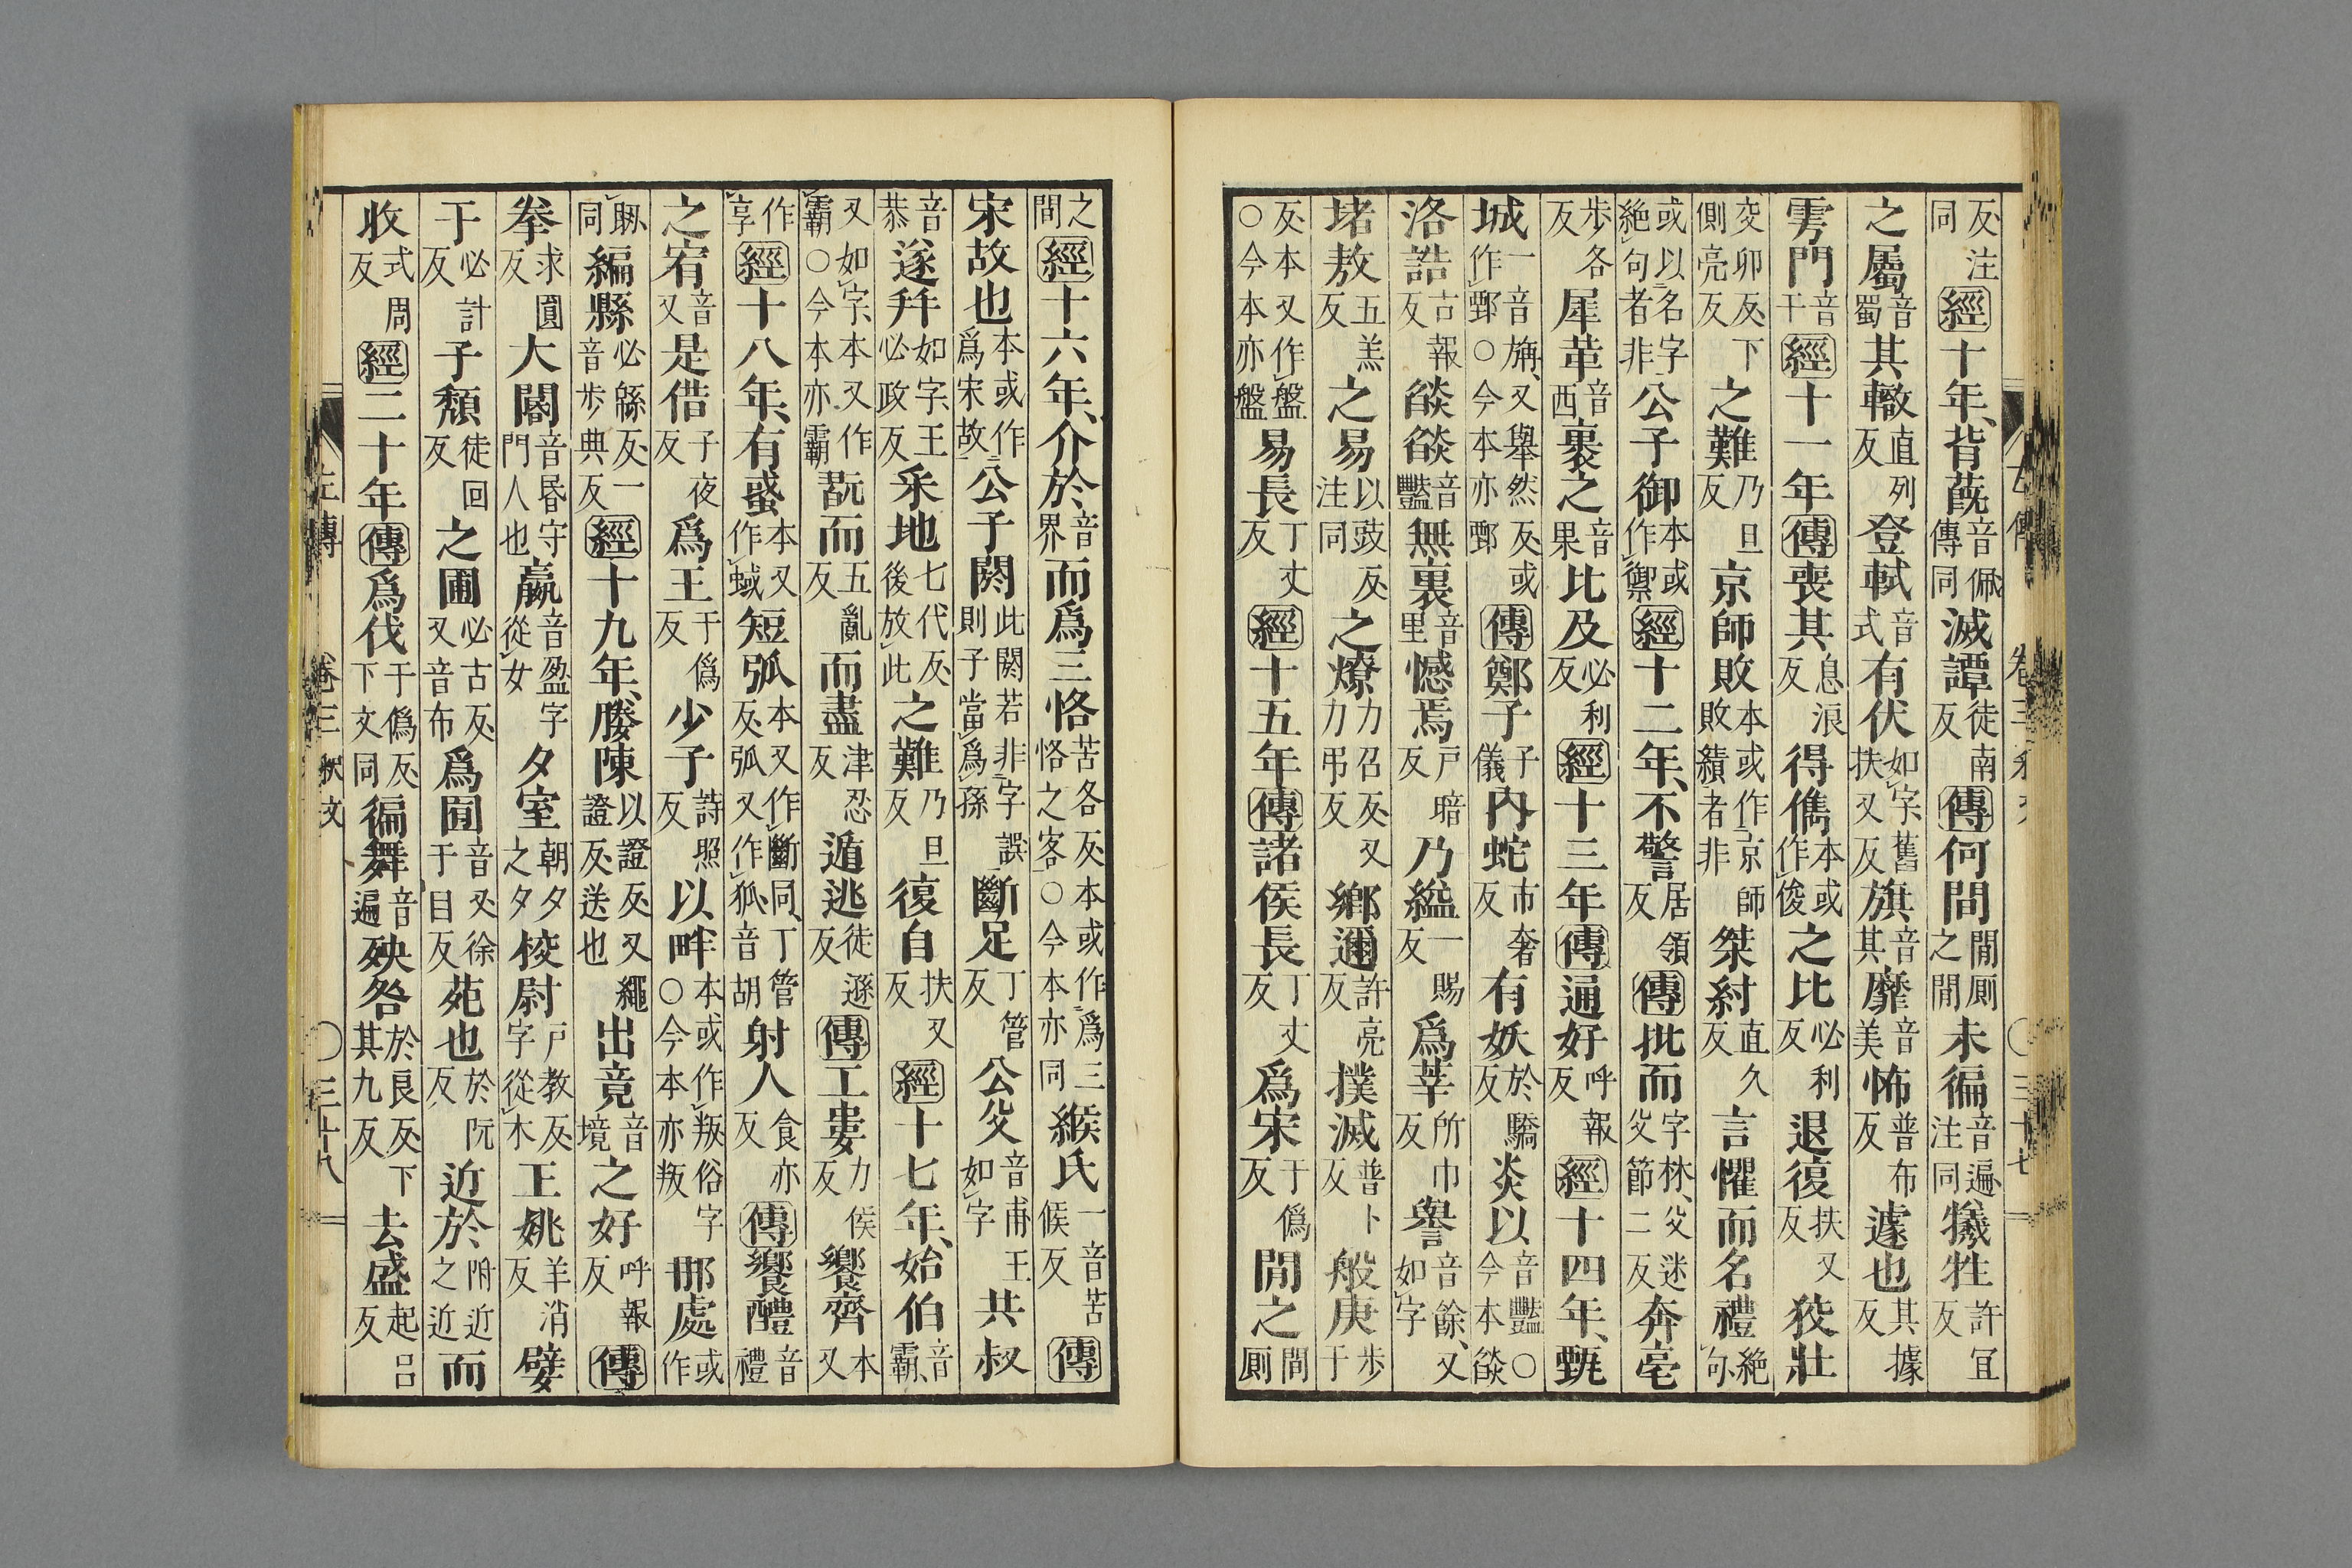 反注同經十年、背蔇音佩傳同滅譚徒南反傳何間間厠之間未徧音遍注同犧牲許宜反
之屬音蜀其轍直列反登軾音式有伏如字舊扶又反旗音其靡音美怖普布反遽也其據反
雩門音干經十一年傳喪其息浪反得儁本或作俊之比必利反退復扶又反狡壯
交卯反下側亮反之難乃旦反京師敗本或作京師敗績者非桀紂直久反言懼而名禮絶句
或以名字絶句者非公子御本或作禦經十二年、不警居領反傳批而字林、父迷父節二反奔亳
步各反犀革音西裹之音果比及必利反經十三年傳通好呼報反經十四年、甄
城一音旃、又舉然反或作鄄○今本亦鄄傳鄭子子儀內蛇市奢反有妖於驕反炎以音豔○今本燄
洛誥古報反燄燄音豔無裏音里憾焉戶暗反乃縊一賜反爲莘所巾反譽音餘、又如字
堵敖五羔反之易以豉反注同之燎力召反又力弔反鄉邇許亮反撲滅普卜反般庚步于
反本又作盤○今本亦盤易長丁丈反經十五年傳諸侯長丁丈反爲宋于僞反間之間厠
之間經十六年、介於音界而爲三恪苦各反本或作爲三恪之客○今本亦同緱氏一音苦侯反傳
宋故也本或作爲宋故公子閼此閼若非字誤則子當爲孫斷足丁管反公父音甫王如字共叔
音恭遂拜如字王必政反采地七代反後放此之難乃旦反復自扶又反經十七年、始伯音霸、
又如字、本又作霸○今本亦霸翫而五亂反而盡津忍反遁逃徒遜反傳工婁力侯反饗齊本又
作享經十八年、有蜮本又作蜮短弧本又作斷同、丁管反弧又作狐音胡射人食亦反傳饗醴音禮
之宥音又是借子夜反爲王于僞反少子詩照反以畔本或作叛俗字○今本亦叛那處或作
聃同編縣必緜反一音步典反經十九年、媵陳以證反又繩證反送也出竟音境之好呼報反傳
拳求圓反大閽音昏守門人也嬴音盈字從女夕室朝夕之夕校尉戶教反字從木王姚羊消反嬖
于必計反子頹徒回反之圃必古反又音布爲囿音又徐于目反苑也於阮反近於附近之近而
收式周反經二十年傳爲伐于僞反下文同徧舞音遍殃咎於良反下其九反去盛起呂反
左傳 卷三 釋文 ○三十八